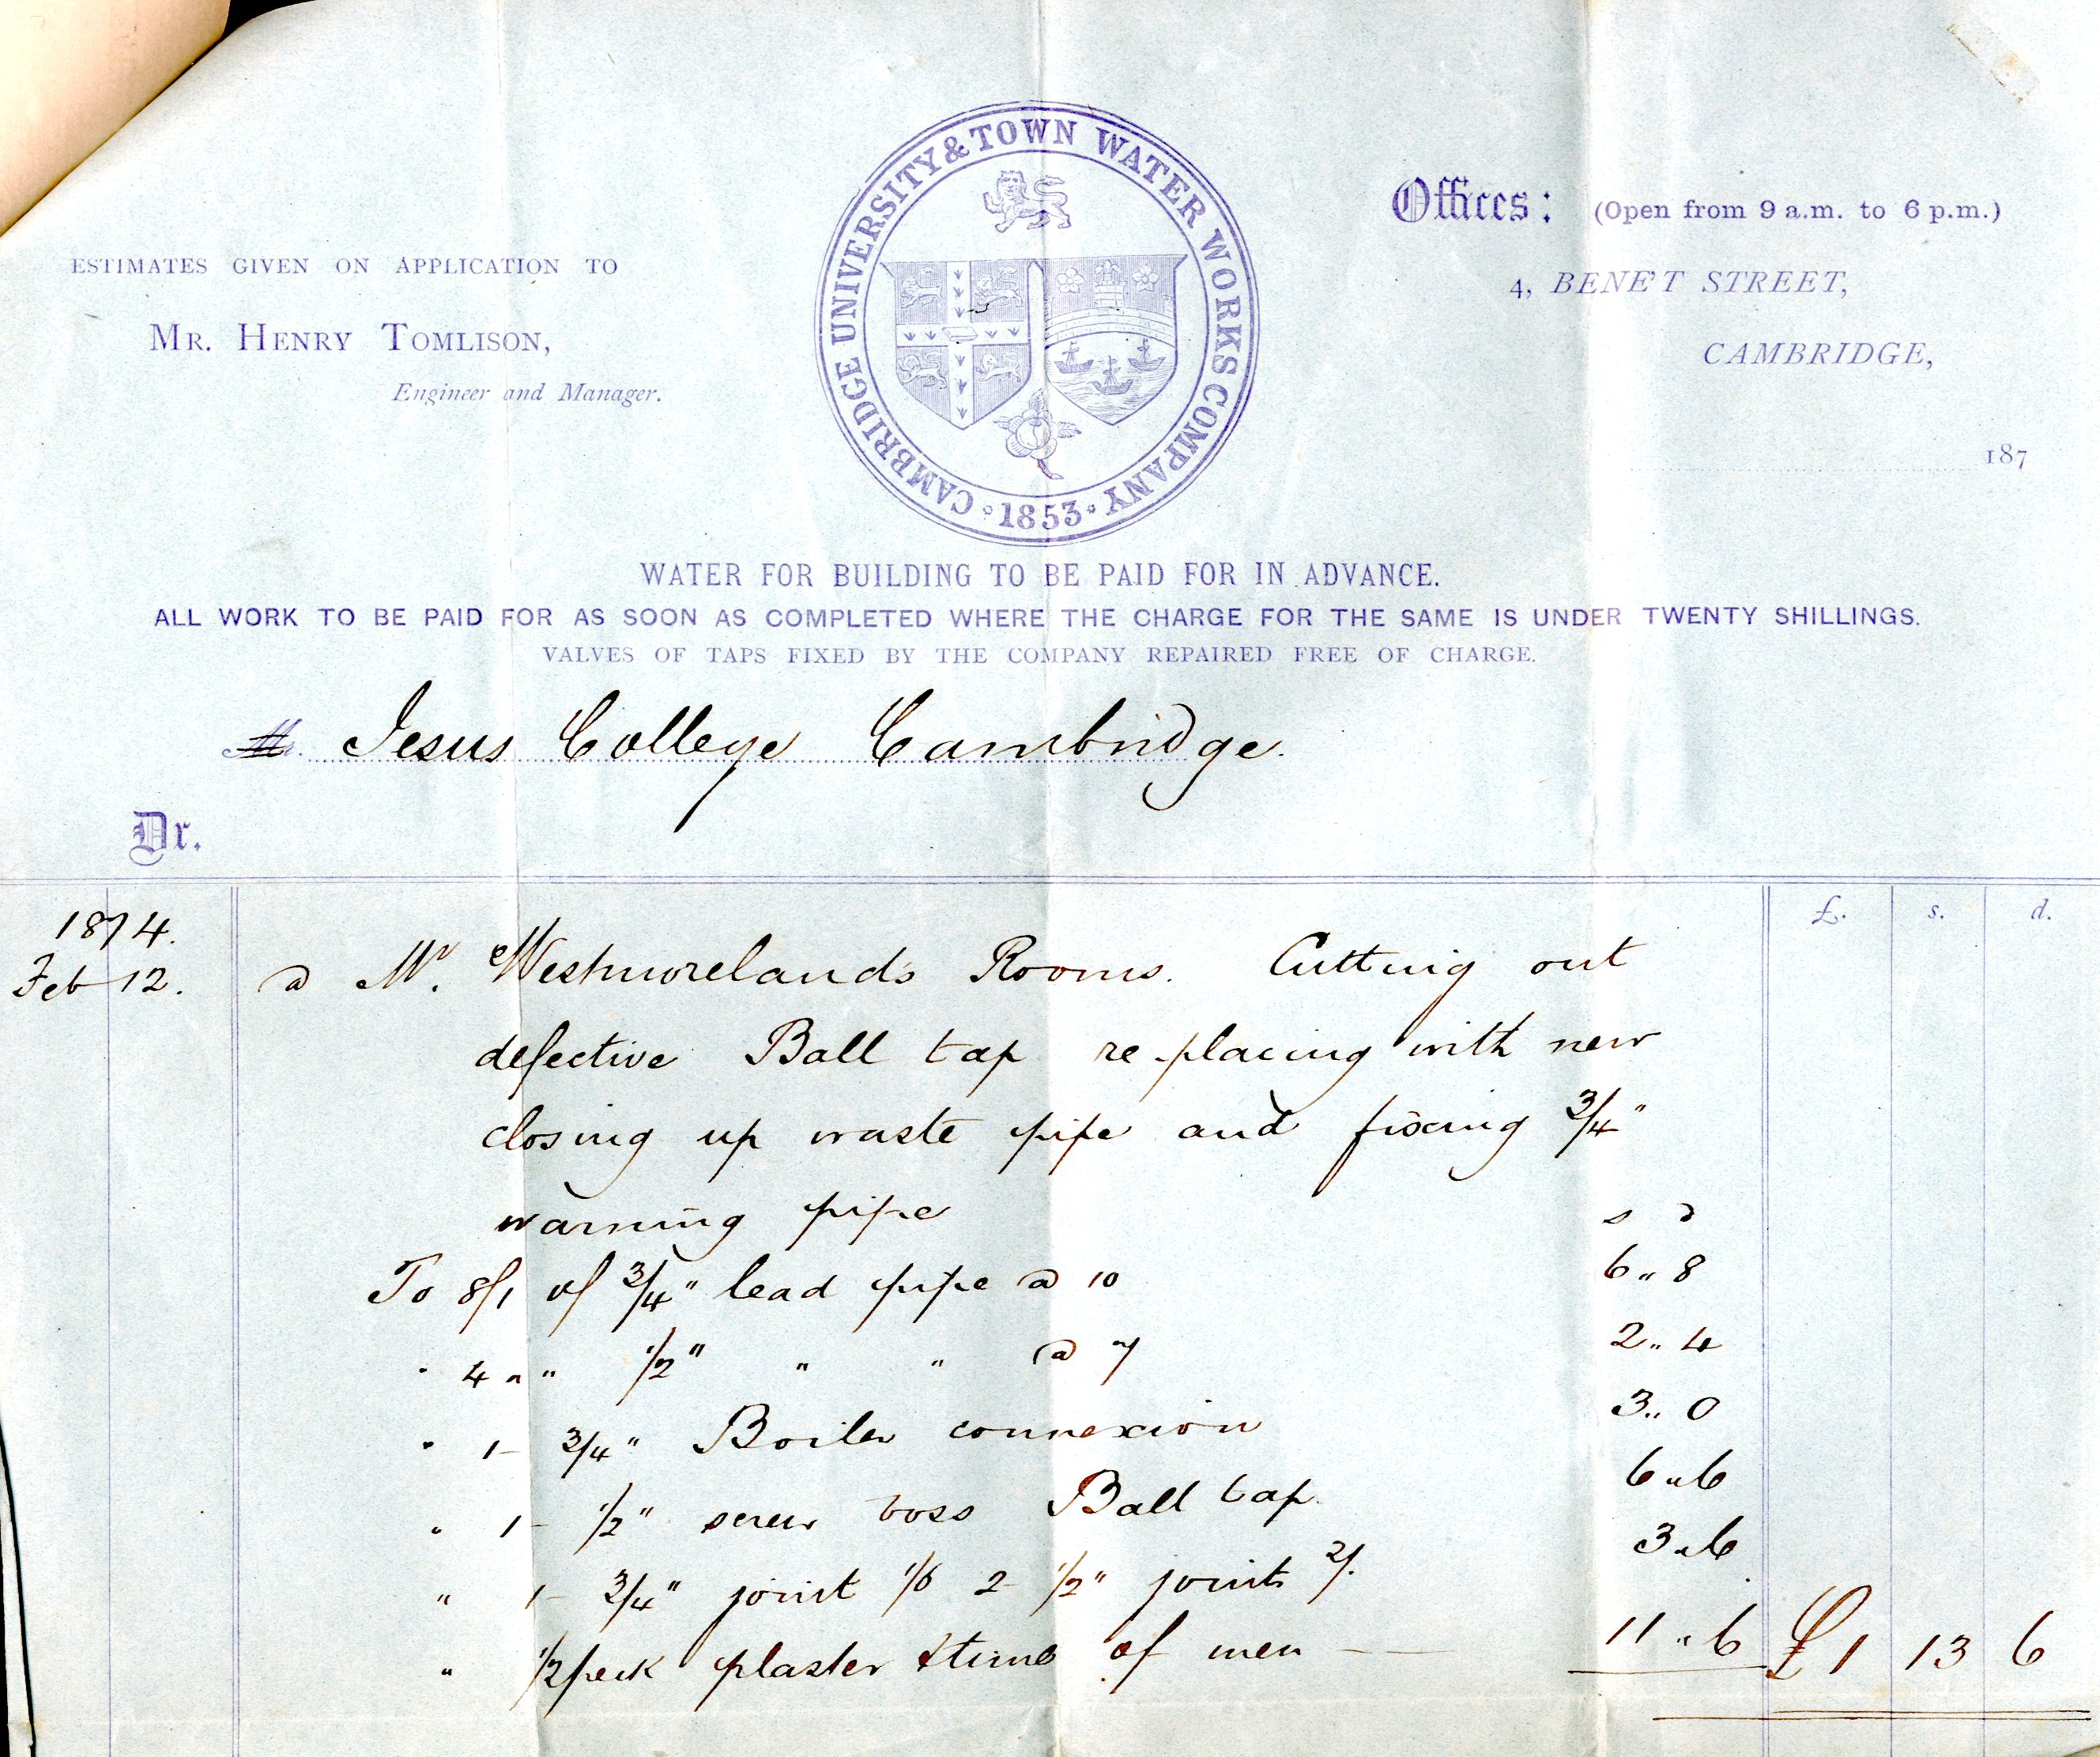 CAMBRIDGE UNIVERSITY & TOWN WATER WORKS COMPANY
· 1853 ·
ESTIMATES GIVEN ON APPLICATION TO
MR. HENRY TOMLISON,
Engineer and Manager.
Offices: (Open from 9 a.m. to 6 p.m.)
4, BENE'T STREET,
CAMBRIDGE,
187
WATER FOR BUILDING TO BE PAID FOR IN ADVANCE.
ALL WORK TO BE PAID FOR AS SOON AS COMPLETED WHERE THE CHARGE FOR THE SAME IS UNDER TWENTY SHILLINGS.
VALVES OF TAPS FIXED BY THE COMPANY REPAIRED FREE OF CHARGE.
Jesus College Cambridge.
Dr.
£. s. d.
1874.
Feb 12. @ Mr. Westmoreland's Rooms. Cutting out
defective Ball tap re-placing with new
closing up waste pipe and fixing 3/4"
warning pipe s d
To 8/1 of 3/4" lead pipe @ 10 6 " 8
" 4 " " 1/2" " " @ 7 2 " 4
" 1 - 3/4" Boiler connexion 3 " 0
" 1 - 1/2" screw boss Ball tap. 6 " 6
" 1 - 3/4" joint 1/6 2 - 1/2" joints 2/. 3 " 6
" 1/2 peck plaster & time of men — 11 " 6 £1 13 6